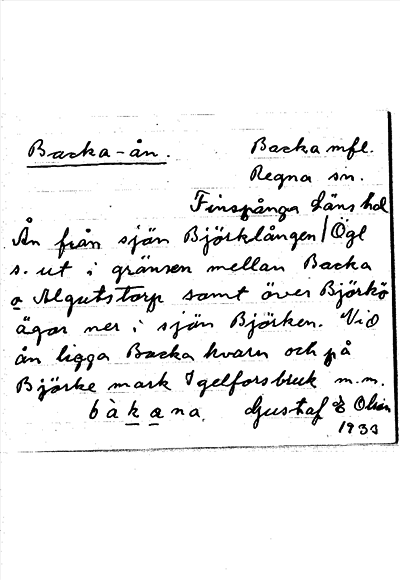 Backa-ån. Backa mfl.
Regna sn.
Finspånga läns hd
Ån från sjön Björklången / Ögl
s. ut i gränsen mellan Backa
o Algutstorp samt över Björkö
ägor ner i sjön Björken. Vid
ån ligga Backa kvarn och på
Björke mark Igelfors bruk m.m.
bàkana. Gustaf E Olsin
1933